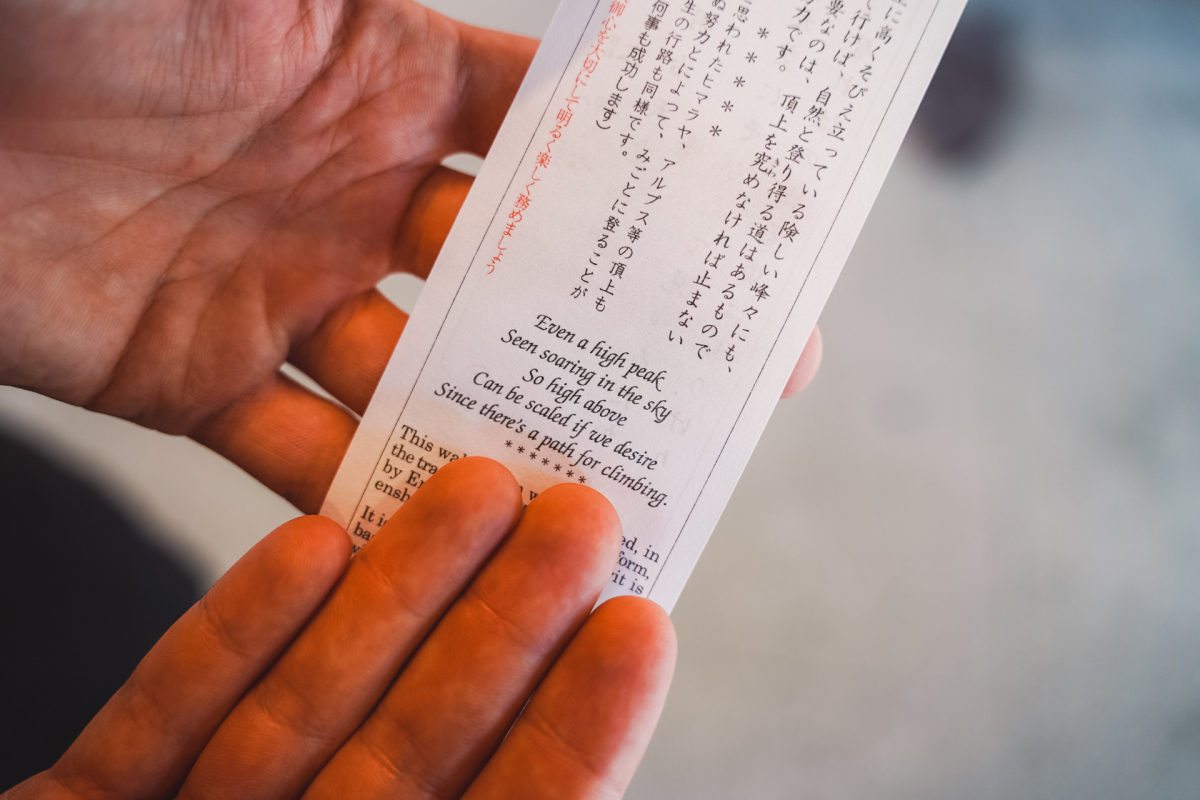 に高くそびえ立っている険しい峰々にも、
て行けば、自然と登り得る道はあるもので
要なのは、頂上を究めなければ止まない
力です。
* * * * *
思われたヒマラヤ、アルプス等の頂上も
ぬ努力とによって、みごとに登ることが
生の行路も同様です。
何事も成功します）
御心を大切にして明るく楽しく務めましょう
Even a high peak
Seen soaring in the sky
So high above
Can be scaled if we desire
Since there's a path for climbing.
* * * * * *
This
the
by
It
in
is